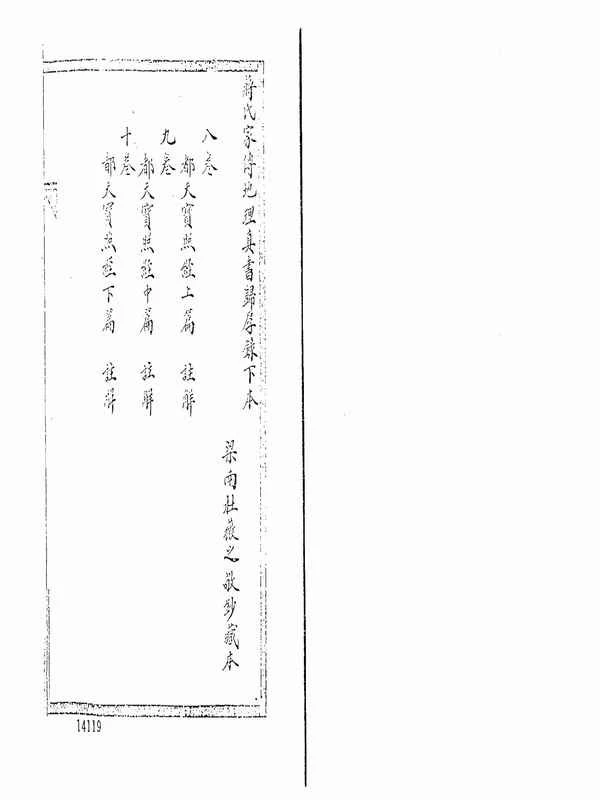 蔣氏家傳地理真書歸厚錄下本
梁南杜薇之敬鈔藏本
八卷
都天寶照經上篇 註解
九卷
都天寶照經中篇 註解
十卷
都天寶照經下篇 註解
14119